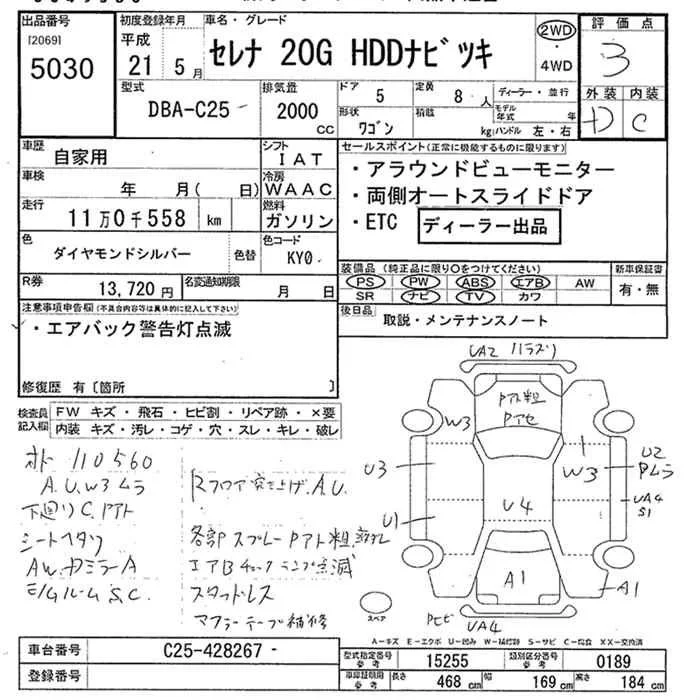 出品番号
[2069]
5030
初度登録年月
平成
21 5 月
車名・グレード
セレナ 20G HDDナビツキ
2WD
・
4WD
評価点
3
外装 内装
D C
型式
DBA-C25
排気量
2000
CC
ドア 5
定員 8 人
形状
ワゴン
積載
kg
ディーラー・並行
モデル年式 年
ハンドル 左・右
車歴
自家用
シフト
I A T
車検
年 月( 日)
冷房
W A A C
走行
11万0千558 km
燃料
ガソリン
色
ダイヤモンドシルバー
色替
色コード
KY0
R券
13,720 円
名変通知期限
月 日
セールスポイント(正常に機能するものに限ります)
・アラウンドビューモニター
・両側オートスライドドア
・ETC ディーラー出品
装備品(純正品に限り○をつけてください)
PS PW ABS エアB AW
SR ナビ TV カワ
新車保証書
有・無
後日品
取説・メンテナンスノート
注意事項申告欄(不具合内容等は具体的に記入して下さい)
・エアバック警告灯点滅
修復歴 有〔箇所 〕
検査員
記入欄
FW キズ・飛石・ヒビ割・リペア跡・×要
内装 キズ・汚レ・コゲ・穴・スレ・キレ・破レ
オド 110560
A.U.W3ムラ
下廻りC.Pアト
シートヘタリ
AW.ドミラーA
E/GルームS.C.
Rフロア突き上げ.A.U.
各部スプレーPアト粗
エアBチェックランプ点滅
スタッドレス
マフラーテープ補修
UA2 ハラズリ
Pアト粗
Pアセ
W3
U3
W3
U2
Pムラ
UA4
S1
U1
U4
A1
A1
Pヒビ
UA4
スペア
A-キズ E-エクボ U-凹み W-補修跡 S-サビ C-腐食 XX-交換済
車台番号
C25-428267
登録番号
型式指定番号
参考
15255
類別区分番号
参考
0189
車庫証明用
参考
長さ 468 cm
幅 169 cm
高さ 184 cm